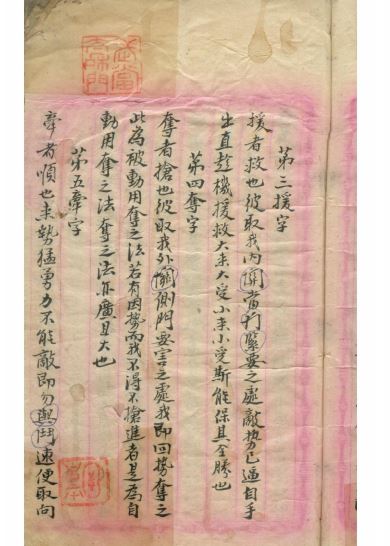 苐三援字
援者救也彼取我内關當行緊要之處敵势已逼自手
出直趁機援救大来大受小来小受斯能保其全勝也
苐四奪字
奪者搶也彼取我外關側門要害之處我即回势奪之
此為被動用奪之法若有因势而我不得不搶進者是為自
動用奪之法奪之法亦廣且大也
苐五牽字
牽者順也来勢猛勇力不能敵即勿與鬥速便取向